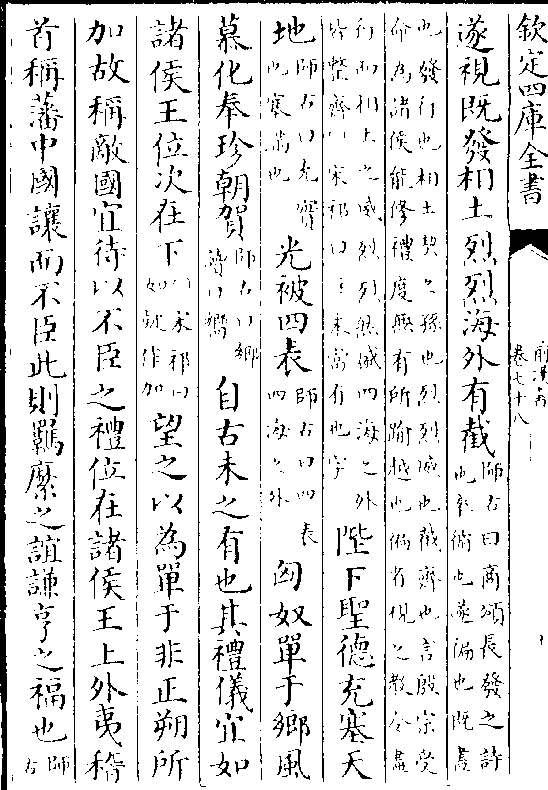 欽定四庫全書
前漢書
卷七十八
遂視既發相土烈烈海外有截師古曰商頌長發之詩也率循也遂徧也既盡
也發行也相土契之孫也烈烈威也截齊也言殷宗受
命為諸侯能修禮度無有所踰越也徧省視之教令盡
行而相土之威烈烈然盛四海之外皆整齊○宋祁曰注末當有也字陛下聖德充塞天
地師古曰充實也塞滿也光被四表師古曰四表四海之外匈奴單于鄉風
慕化奉珍朝賀師古曰鄉讀曰嚮自古未之有也其禮儀宜如
諸侯王位次在下○宋祁曰如就作加望之以為單于非正朔所
加故稱敵國宜待以不臣之禮位在諸侯王上外夷稽
首稱藩中國讓而不臣此則羈縻之誼謙亨之福也師古